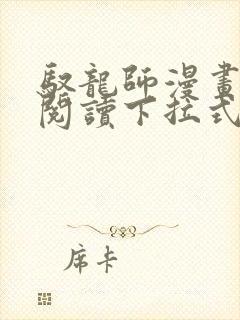 馭龍師漫畫
閱讀下拉式
席卡